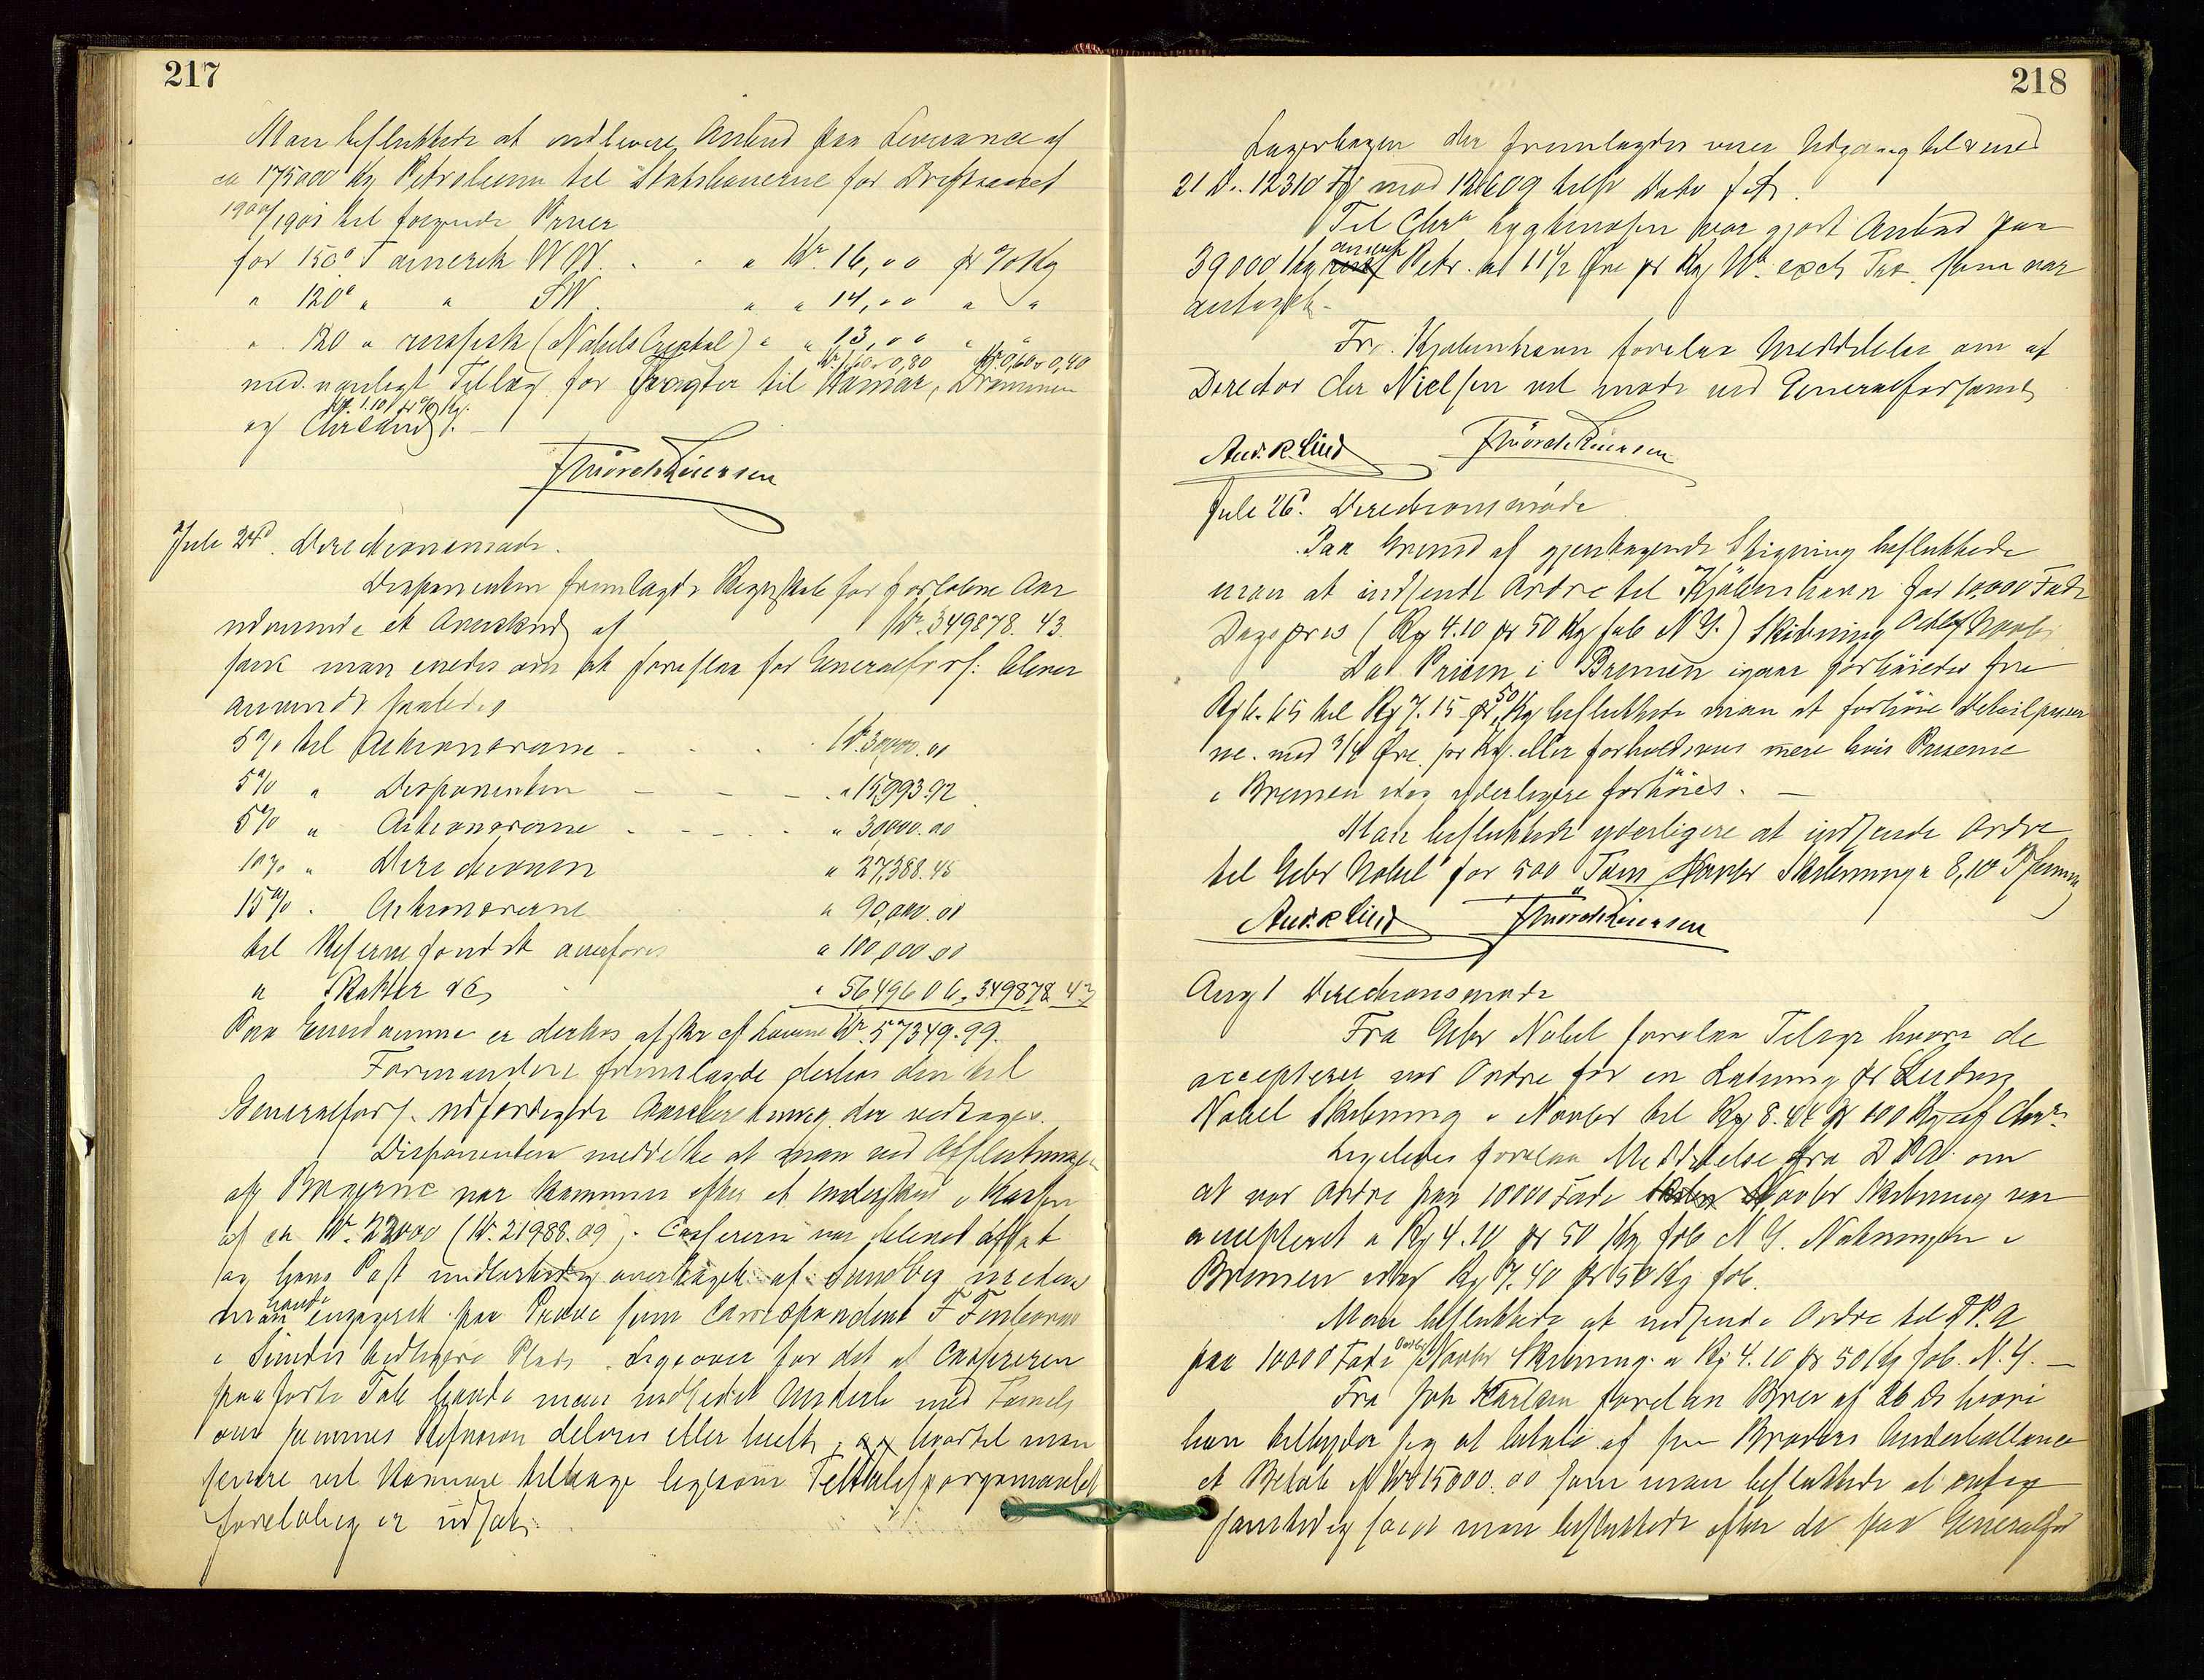 217
Man besluttede at indlevere Anbud paa Leverance af
ca 175000 Kg Petroleum til Statsbanerne for Driftsaaret
1900/1901 til følgende Priser
for 150° T amerik WW. " " Kr. 16,00 pr % Kg
" 120° " " SW " " 14,00 " "
" 120 " russisk (Nobels Crystal) " " 13,00 " "
Kr. 1,60 0,80 Kr. 0,60 0,40
med vanligt Tillæg for Fragter til Hamar, Drammen
Kr. 1.10 pr % Kg.
og
Juli 24d. Directionsmøde.
Disponenten fremlagde Regnskab for forløbne Aar
udvisende et Overskud af Kr. 349878.43.
som man enedes om at foreslaa for Generalfors: bliver
anvendt saaledes
5% til Aktionærerne - - - Kr. 30,000.00
5% " Disponenten - - - " 15,993.92
5% " Aktionærerne - - - " 30000.00
10% " Directionen " 27,388.45
15% " Aktionærerne " 90,000.00
til Reservefondet overføres " 100,000.00
" Skatter &c " 56496 06 " 349878.43
Paa Eiendomme er derhos afskr. Kr. 57349.99.
Formanden fremlagde derhos den til
Generalfors. udfærdigede Aarsberetning der vedtoges.
Disponenten meddelte at man ved Afslutningen
af Bøgerne var kommen efter et Underskud i Kassen
af ca Kr. 22000 (Kr. 21988.09). Cassereren var blevet afsat
og hans Post midlertidig overtaget af Sundbey medens
havde
man engageret paa Prøve som Correspondent F
i hidtidige Plads. Ligeover for det at Cassereren
paaførte Tab havde man indledet Underh. med
om sammes Refusion delvis eller helt, hvortil man
senere vil komme tilbage ligesom
foreløbig er udsat.
218
Lagerbogen der fremlagdes viser Udgang til & med
21 ds. 12310 Fde mod 12609 til samme Dato f. A.
Til Chra Lygtevæsen var gjort Anbud paa
amerik
39000 Kg Petr. at 11 1/2 Øre pr Kg Nt. excl. Fad som var
antaget.
Fra Kjøbenhavn forelaa Meddelelse om at
Director Chr Nielsen vil møde ved Generalforsaml.
And. R. Lind
Juli 26d. Directionsmøde
Paa Grund af gjentagende Stigning besluttede
man at indsende Ordre til Kjøbenhavn for 10,000 Fade
Dagspris (Rg 4.10 pr 50 Kg fob N.Y.) Skibning Octbr Novbr
Da Prisen i Bremen igaar forhöiedes fra
50
Rg 6.65 til Rg 7.15 pr Kg besluttede man at forhöie Detailpriser
ne med 3/4 Øre pr Kg. eller forholdsvis mere hvis Priserne
i Bremen idag yderligere forhöies. -
Man besluttede yderligere at indsende Ordre
til Gebr Nobel for 500 Tons Novbr Skibning a 8,10
And. R. Lind
Aug 1 Directionsmøde
Fra Gebr Nobel forelaa Telegr hvori de
accepterer vor Ordre for en Ladning pr Ludvig
Nobel Skibning i Novbr til Rg 8.44 pr 100 Kg cif Chra.
Ligeledes forelaa Meddelelse fra D.P.A. om
at vor Ordre paa 10000 Fade Novbr Skibning var
accepteret a Rg 4.10 pr 50 Kg fob N.Y. Noteringen i
Bremen idag Rg 7.40 pr 50 Kg fob.
Man besluttede at indsende Ordre til D.P.A
Octbr
paa 10000 Fade Novbr Skibning a Rg 4.10 pr 50 Kg fob. N.Y. -
Fra Joh Karlsen forelaa Brev af 26 ds hvori
han tilbyder sig at betale af sin Broders Underballance
et Beløb af Kr 15000.00 som man besluttede at
samtidig som man besluttede efter de paa Generalfor